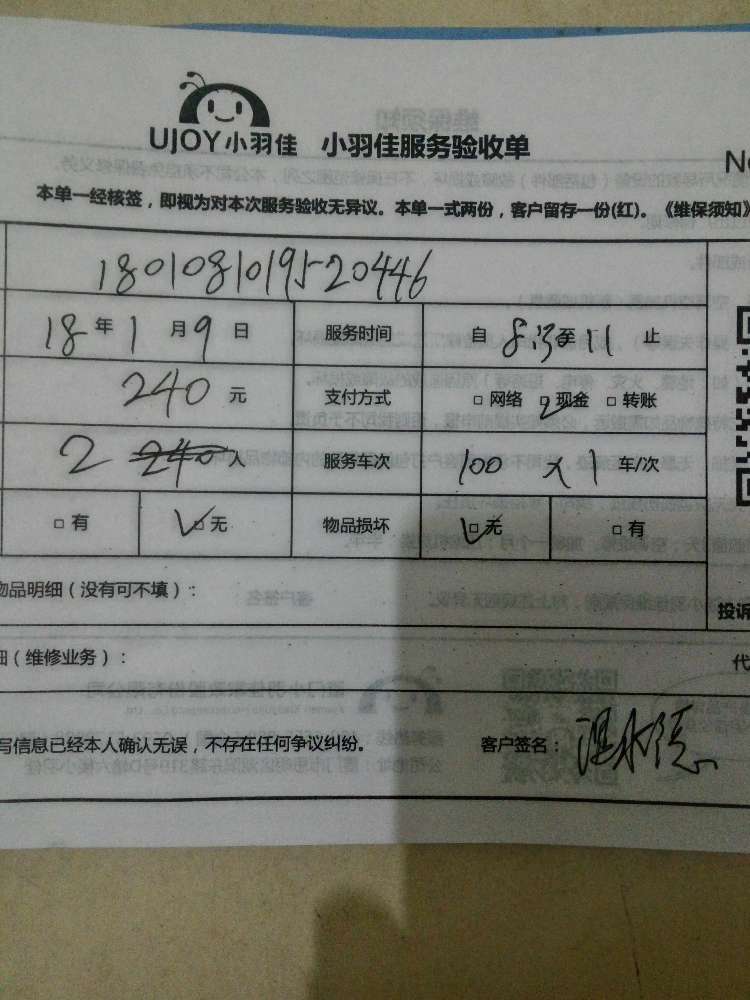 UJOY小羽佳 小羽佳服务验收单
No
本单一经核签，即视为对本次服务验收无异议。本单一式两份，客户留存一份(红)。《维保须知》
18010810195-20446
18 年 1 月 9 日 服务时间 自 8:30 至 11 止
240 元 支付方式 □ 网络 ☑ 现金 □ 转账
2 240 人 服务车次 100 x 1 车/次
□ 有 ☑ 无 物品损坏 ☑ 无 □ 有
物品明细（没有可不填）：
投诉
（维修业务）：
代
写信息已经本人确认无误，不存在任何争议纠纷。 客户签名：